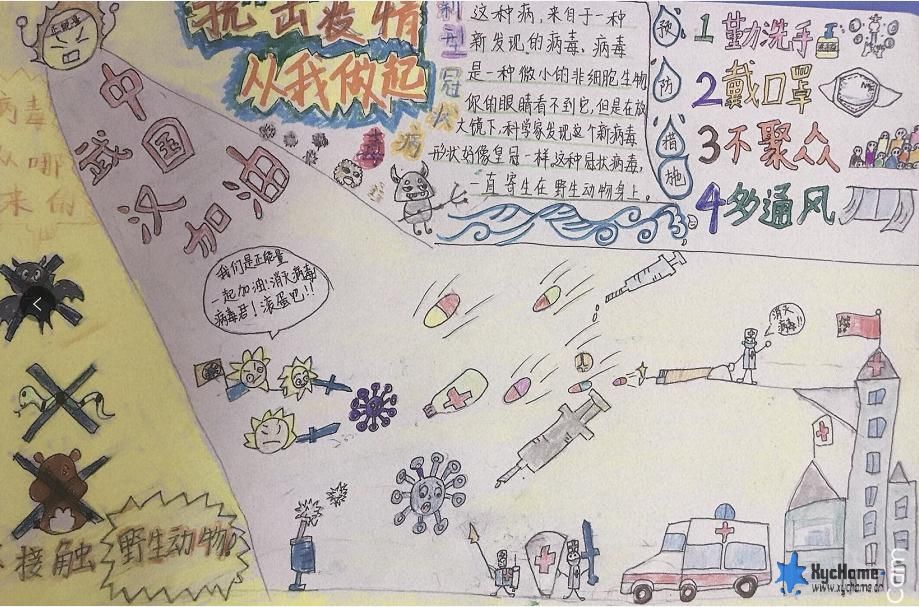 正能量
抗击疫情
从我做起
中国
武汉
加油
病毒
从哪
来的
新型冠状病毒
这种病,来自于一种
新发现的病毒,病毒
是一种微小的非细胞生物
你的眼睛看不到它,但是在放
大镜下,科学家发现这个新病毒
形状好像皇冠一样,这种冠状病毒,
一直寄生在野生动物身上。
预防措施
1 勤洗手
2 戴口罩
3 不聚众
4 多通风
我们是正能量
一起加油!消灭病毒
病毒君!滚蛋吧!!
消灭
病毒!!
接触 野生动物!
XycHome
www.xychome.cn
cam